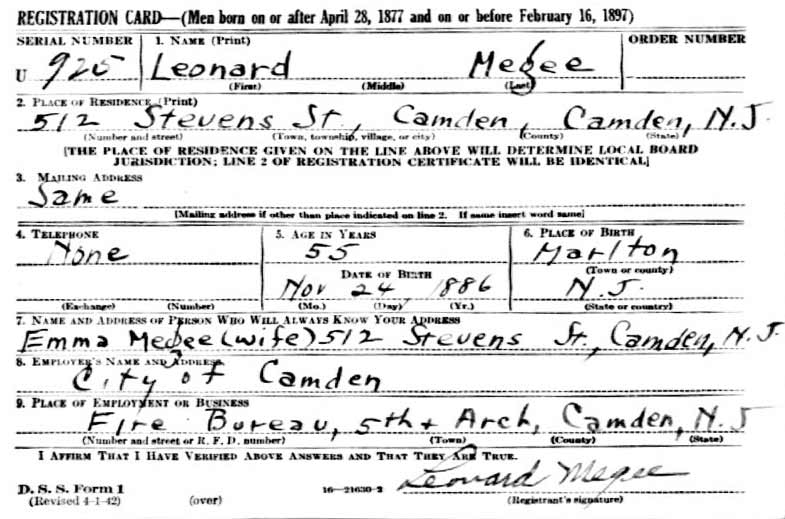 REGISTRATION CARD—(Men born on or after April 28, 1877 and on or before February 16, 1897)
SERIAL NUMBER 1. NAME (Print) ORDER NUMBER
U 925 Leonard Megee
(First) (Middle) (Last)
2. PLACE OF RESIDENCE (Print)
512 Stevens St., Camden, Camden, N.J.
(Number and street) (Town, township, village, or city) (County) (State)
[THE PLACE OF RESIDENCE GIVEN ON THE LINE ABOVE WILL DETERMINE LOCAL BOARD
JURISDICTION; LINE 2 OF REGISTRATION CERTIFICATE WILL BE IDENTICAL]
3. MAILING ADDRESS
Same
[Mailing address if other than place indicated on line 2. If same insert word same]
4. TELEPHONE 5. AGE IN YEARS 6. PLACE OF BIRTH
None 55 Marlton
DATE OF BIRTH (Town or county)
Nov 24 1886 N.J.
(Exchange) (Number) (Mo.) (Day) (Yr.) (State or country)
7. NAME AND ADDRESS OF PERSON WHO WILL ALWAYS KNOW YOUR ADDRESS
Emma Megee (wife) 512 Stevens St., Camden, N.J.
8. EMPLOYER'S NAME AND ADDRESS
City of Camden
9. PLACE OF EMPLOYMENT OR BUSINESS
Fire Bureau, 5th + Arch, Camden, N.J
(Number and street or R. F. D. number) (Town) (County) (State)
I AFFIRM THAT I HAVE VERIFIED ABOVE ANSWERS AND THAT THEY ARE TRUE.
Leonard Megee
D. S. S. Form 1 16—21630-2 (Registrant's signature)
(Revised 4-1-42) (over)